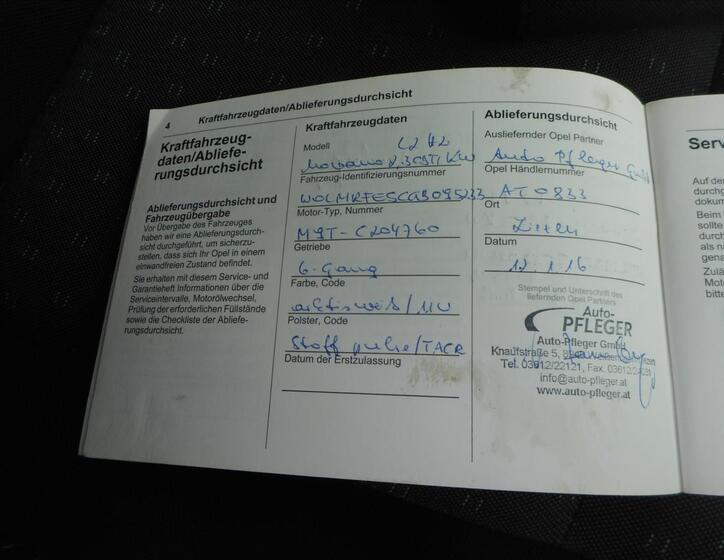 4
Kraftfahrzeugdaten/Ablieferungsdurchsicht
Kraftfahrzeug-
daten/Abliefe-
rungsdurchsicht
Ablieferungsdurchsicht und
Fahrzeugübergabe
Vor Übergabe des Fahrzeuges
haben wir eine Ablieferungsdurch-
sicht durchgeführt, um sicherzu-
stellen, dass sich Ihr Opel in einem
einwandfreien Zustand befindet.
Sie erhalten mit diesem Service- und
Garantieheft Informationen über die
Serviceintervalle, Motorölwechsel,
Prüfung der erforderlichen Füllstände
sowie die Checkliste der Abliefe-
rungsdurchsicht.
Kraftfahrzeugdaten
L2H2
Modell
Movano
Fahrzeug-Identifizierungsnummer
Motor-Typ, Nummer
M9T-C204760
Getriebe
6-Gang
Farbe, Code
arktisweiß/
Polster, Code
Stoff
Datum der Erstzulassung
Ablieferungsdurchsicht
Ausliefernder Opel Partner
Auto Pfleger GmbH
Opel Händlernummer
AT0833
Ort
Liezen
Datum
12.1.16
Stempel und Unterschrift des
liefernden Opel Partners
Auto-
PFLEGER
Auto-Pfleger GmbH
Knaufstraße 5,
Tel. 03612/22121, Fax.
info@auto-pfleger.at
www.auto-pfleger.at
Serv
Auf de
durchg
dokum
Beim
sollte
durch
als na
gena
Zulä
Mot
bitte